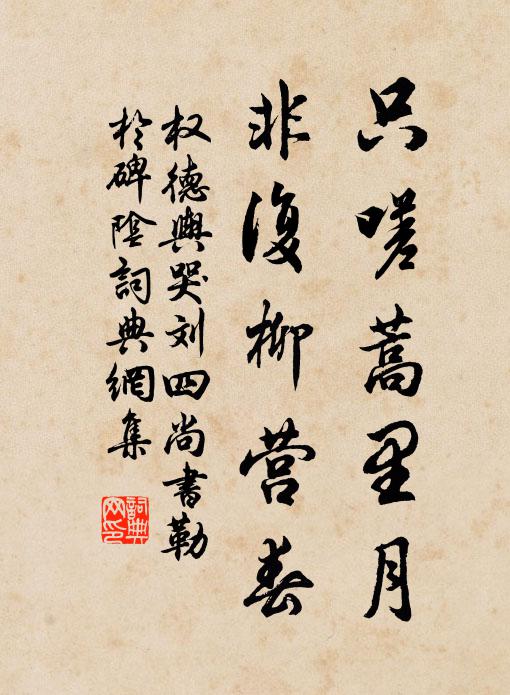 只嗟蒿里月
非復柳营春
权德輿哭刘四尚書勒
於碑陰詞典網集
詞典网印